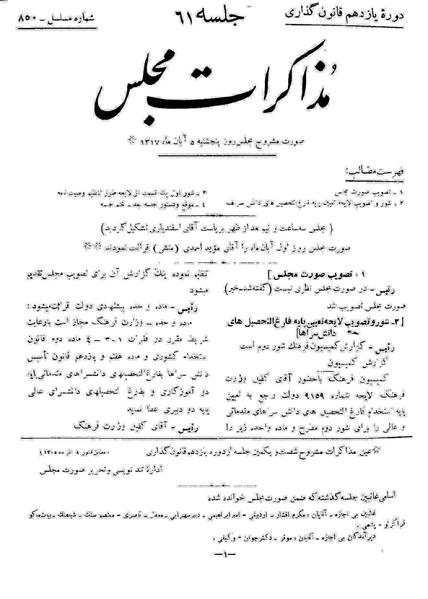 دورهٔ یازدهم قانون گذاری
جلسه ۶۱
شماره مسلسل - ۸۵۰
مذاکرات مجلس
صورت مشروح مجلس روز پنجشنبه ۵ آبان ماه ۱۳۱۷
فهرست مطالب:
۱ - تصویب صورت مجلس
۲ - شور و تصویب لایحه تعیین پایه فارغ التحصیل های دانش سراها
۳ - شور اول یک قسمت از لایحه
۴ - موقع و دستور جلسه بعد - ختم جلسه
( مجلس سه ساعت و نیم بعد از ظهر بریاست آقای اسفندیاری تشکیل گردید )
صورت مجلس روز اول آبان ماه را آقای مؤید احمدی (منشی) قرائت نمودند
۱ - تصویب صورت مجلس ]
رئیس - در صورت مجلس نظری نیست (گفته شد - خیر)
صورت مجلس تصویب شد
[ ۲- شور و تصویب لایحه تعیین پایه فارغ التحصیل های
دانش سراها ]
رئیس - گزارش کمیسیون فرهنگ شور دوم است
گزارش کمیسیون
کمیسیون فرهنگ باحضور آقای کفیل وزارت
فرهنگ لایحه شماره ۹۱۵۹ دولت راجع به تعیین
پایه استخدام فارغ التحصیل های دانش سراهای مقدماتی
و عالی را برای شور دوم مطرح و ماده واحده زیر را
تنظیم نموده اینک گزارش آن برای تصویب مجلس تقدیم
میشود
رئیس - ماده واحده پیشنهادی دولت قرائت میشود:
ماده واحده - وزارت فرهنگ مجاز است بارعایت
شرایط مقرر در فقرات ۱-۳-۴ ماده دوم قانون
استخدام کشوری و ماده هفتم و یازدهم قانون تأسیس
دانش سراها بفارغ التحصیلهای دانشسراهای مقدماتی پایه
دو آموزگاری و بفارغ التحصیلهای دانشسرای عالی
پایه دو دبیری اعطا نماید
رئیس - آقای کفیل وزارت فرهنگ
عین مذاکرات مشروح شصت و یکمین جلسه از دوره یازدهم قانون گذاری
اداره تند نویسی و تحریر صورت مجلس
اسامی غائبین جلسه گذشته که ضمن صورت مجلس خوانده شده
غائبین بی اجازه - آقایان: مکرم افشار - اردبیلی - امیر ابراهیمی - دبیر سهرابی - معدل - ناصری - معتصم سنگ - بیات ماکو
قراگزلو -
دیرآمدگان بی اجازه - آقایان: موقر - دکتر جوان - وکیلی
-۱-